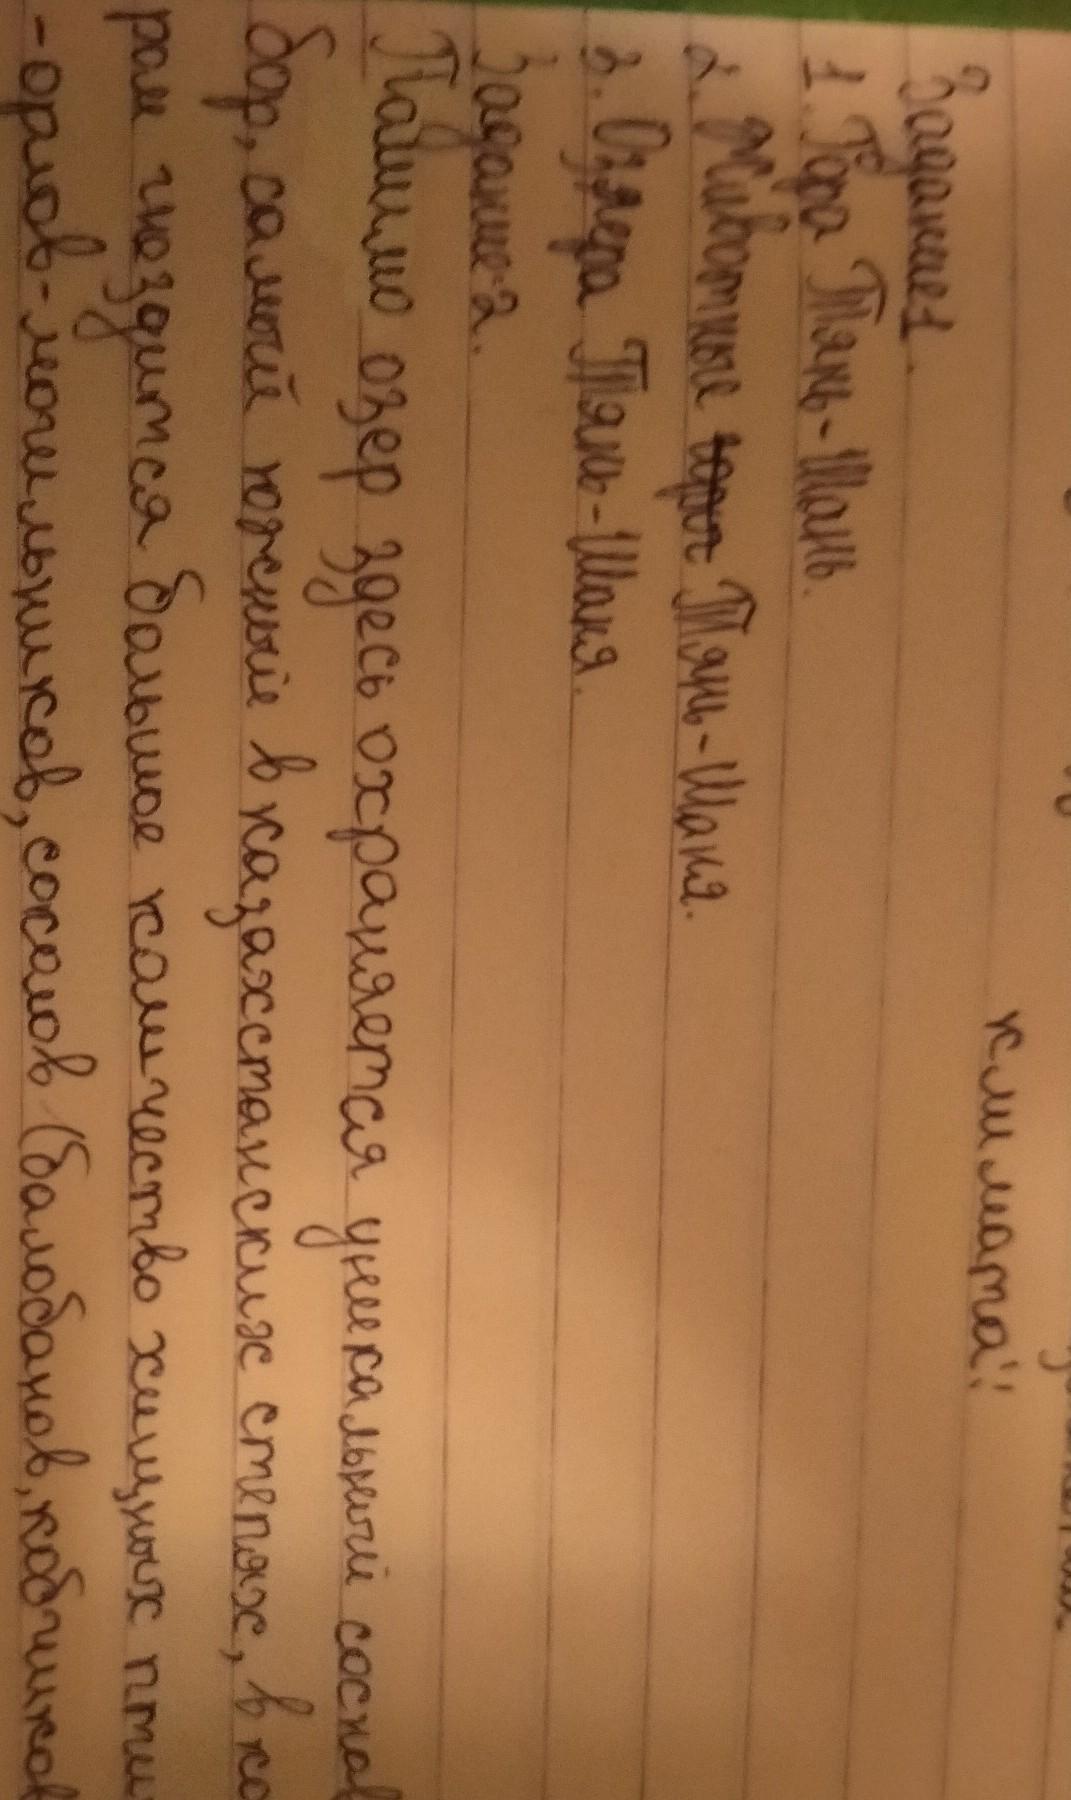 климата":
Задание 1.
1. Гора Тянь-Шань.
2. Животные Тянь-Шаня.
3. Озёера Тянь-Шаня.
Задание-2.
Памимо озер здесь охраняется уникальный соснов
бор, самый южный в казахстанских степях, в ко
рам гнездится большое количество хищных птиц
-орлов-могильников, соколов (балобанов, кобчиков